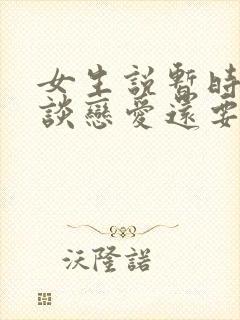 女生説暫時
談戀愛還要
沃隆諾